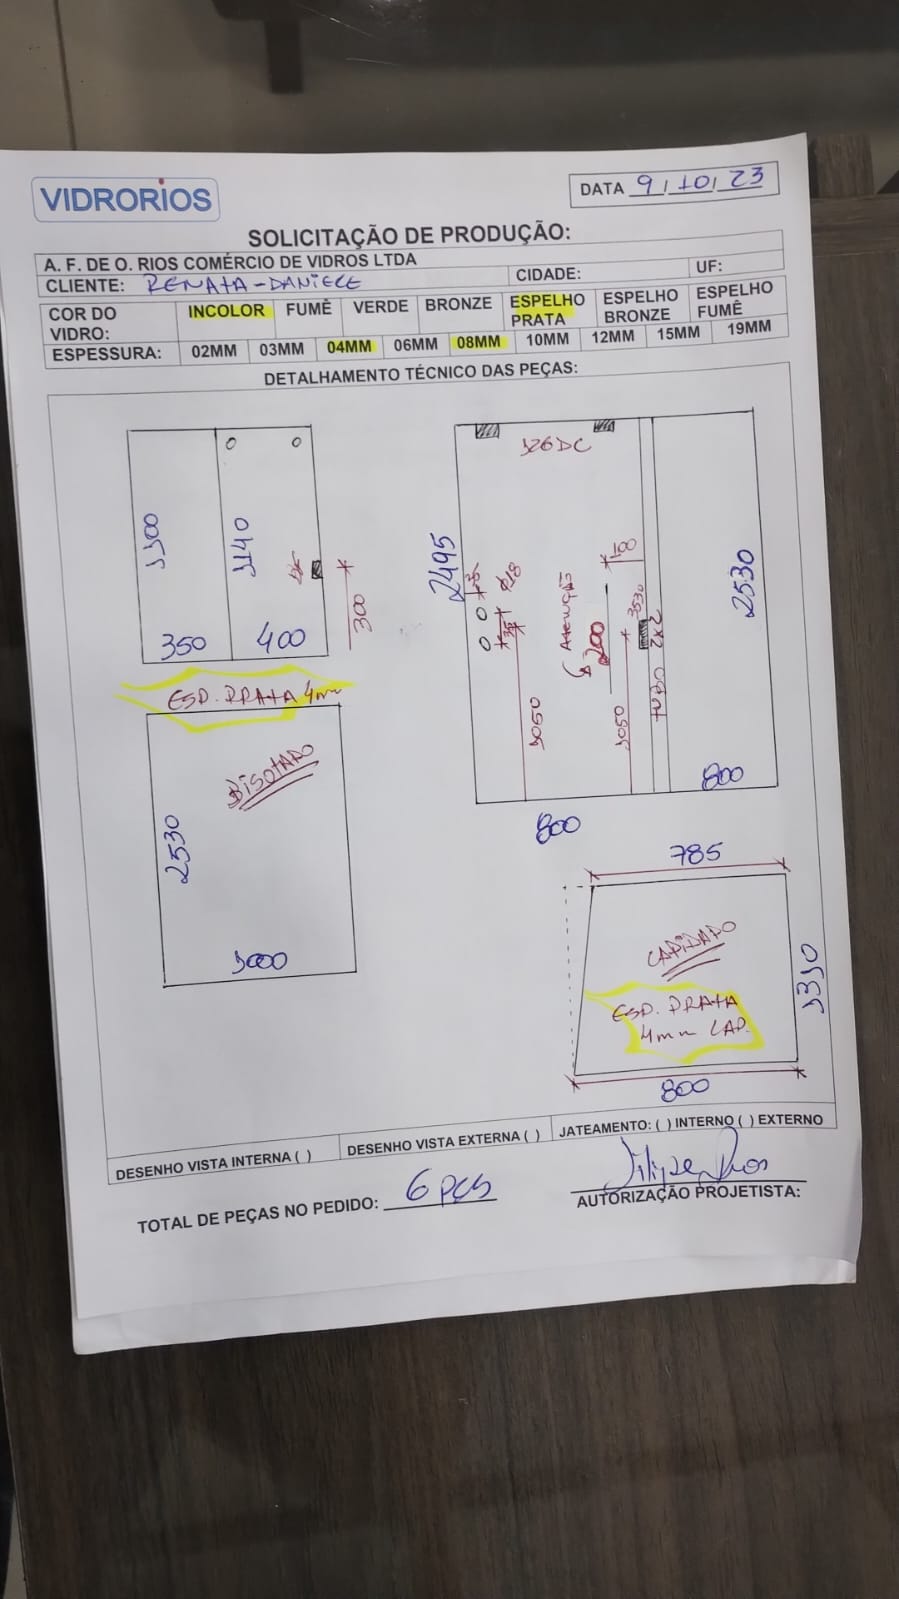 VIDRORIOS
DATA 9/10/23
SOLICITAÇÃO DE PRODUÇÃO:
A. F. DE O. RIOS COMÉRCIO DE VIDROS LTDA
CLIENTE: RENATA-DANIELE CIDADE: UF:
COR DO VIDRO: INCOLOR FUMÊ VERDE BRONZE ESPELHO PRATA ESPELHO BRONZE ESPELHO FUMÊ
ESPESSURA: 02MM 03MM 04MM 06MM 08MM 10MM 12MM 15MM 19MM
DETALHAMENTO TÉCNICO DAS PEÇAS:
1100
1140
300
350
400
ESP. PRATA 4mm
BISOTADO
2530
1000
2495
Atenção
200
1050
1050
TUBO 2x2
2530
800
800
785
LAPIDADO
ESP. PRATA
4mm LAP.
1310
800
DESENHO VISTA INTERNA ( ) DESENHO VISTA EXTERNA ( ) JATEAMENTO: ( ) INTERNO ( ) EXTERNO
TOTAL DE PEÇAS NO PEDIDO: 6 PÇS
AUTORIZAÇÃO PROJETISTA: